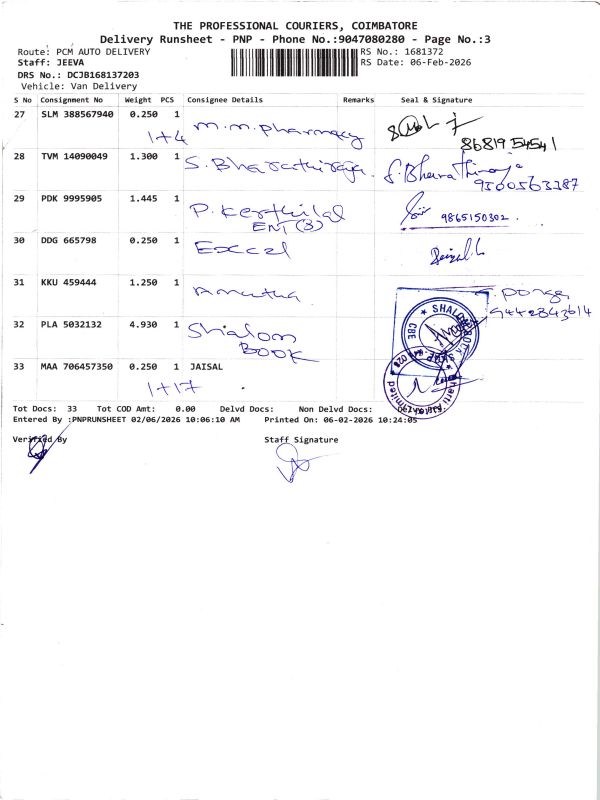 THE PROFESSIONAL COURIERS, COIMBATORE
Delivery Runsheet - PNP - Phone No.:9047080280 - Page No.:3
Route: PCM AUTO DELIVERY
RS No.: 1681372
Staff: JEEVA
RS Date: 06-Feb-2026
DRS No.: DCJB168137203
Vehicle: Van Delivery
S No Consignment No Weight PCS Consignee Details Remarks Seal & Signature
27 SLM 388567940 0.250 1 m.m.pharmacy
1+4
8681954541
28 TVM 14090049 1.300 1 S. Bharathiraja. S. Bharathiraja
9500563287
29 PDK 9995905 1.445 1 P. Kerthilal
ENT (B)
9865150302
30 DDG 665798 0.250 1 Excel
31 KKU 459444 1.250 1 Amutha
9442843614
32 PLA 5032132 4.930 1 Shalom
BOOK
SHALOM BOOK SHOP
CBE
33 MAA 706457350 0.250 1 JAISAL
1+17
Tot Docs: 33 Tot COD Amt: 0.00 Delvd Docs: Non Delvd Docs:
Entered By :PNPRUNSHEET 02/06/2026 10:06:10 AM Printed On: 06-02-2026 10:24:05
Verified By Staff Signature